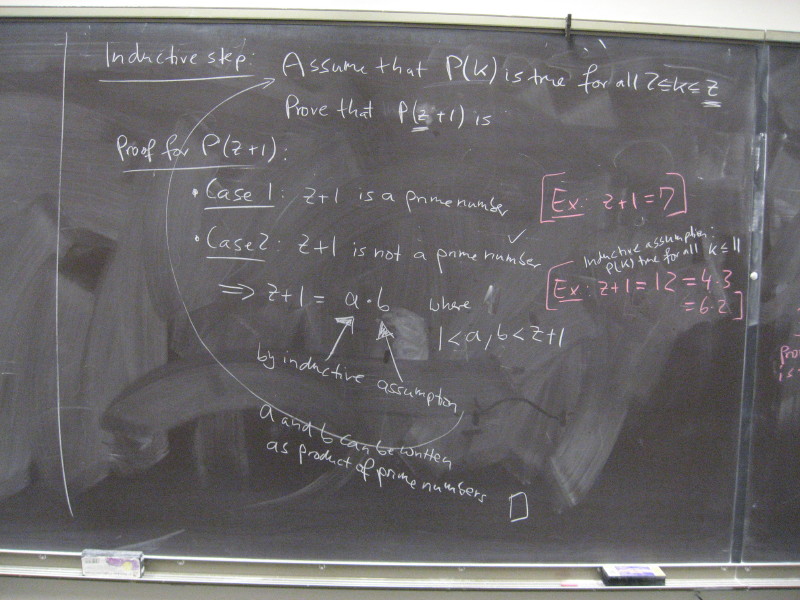 Inductive step: Assume that P(k) is true for all 2≤k≤z
Prove that P(z+1) is
Proof for P(z+1):
• Case 1: z+1 is a prime number ✓
[Ex: z+1=7]
• Case 2: z+1 is not a prime number
Inductive assumption:
P(k) true for all k≤11
[Ex: z+1=12=4·3
=6·2]
⟹ z+1 = a·b where
1<a,b<z+1
by inductive assumption
a and b can be written
as product of prime numbers □